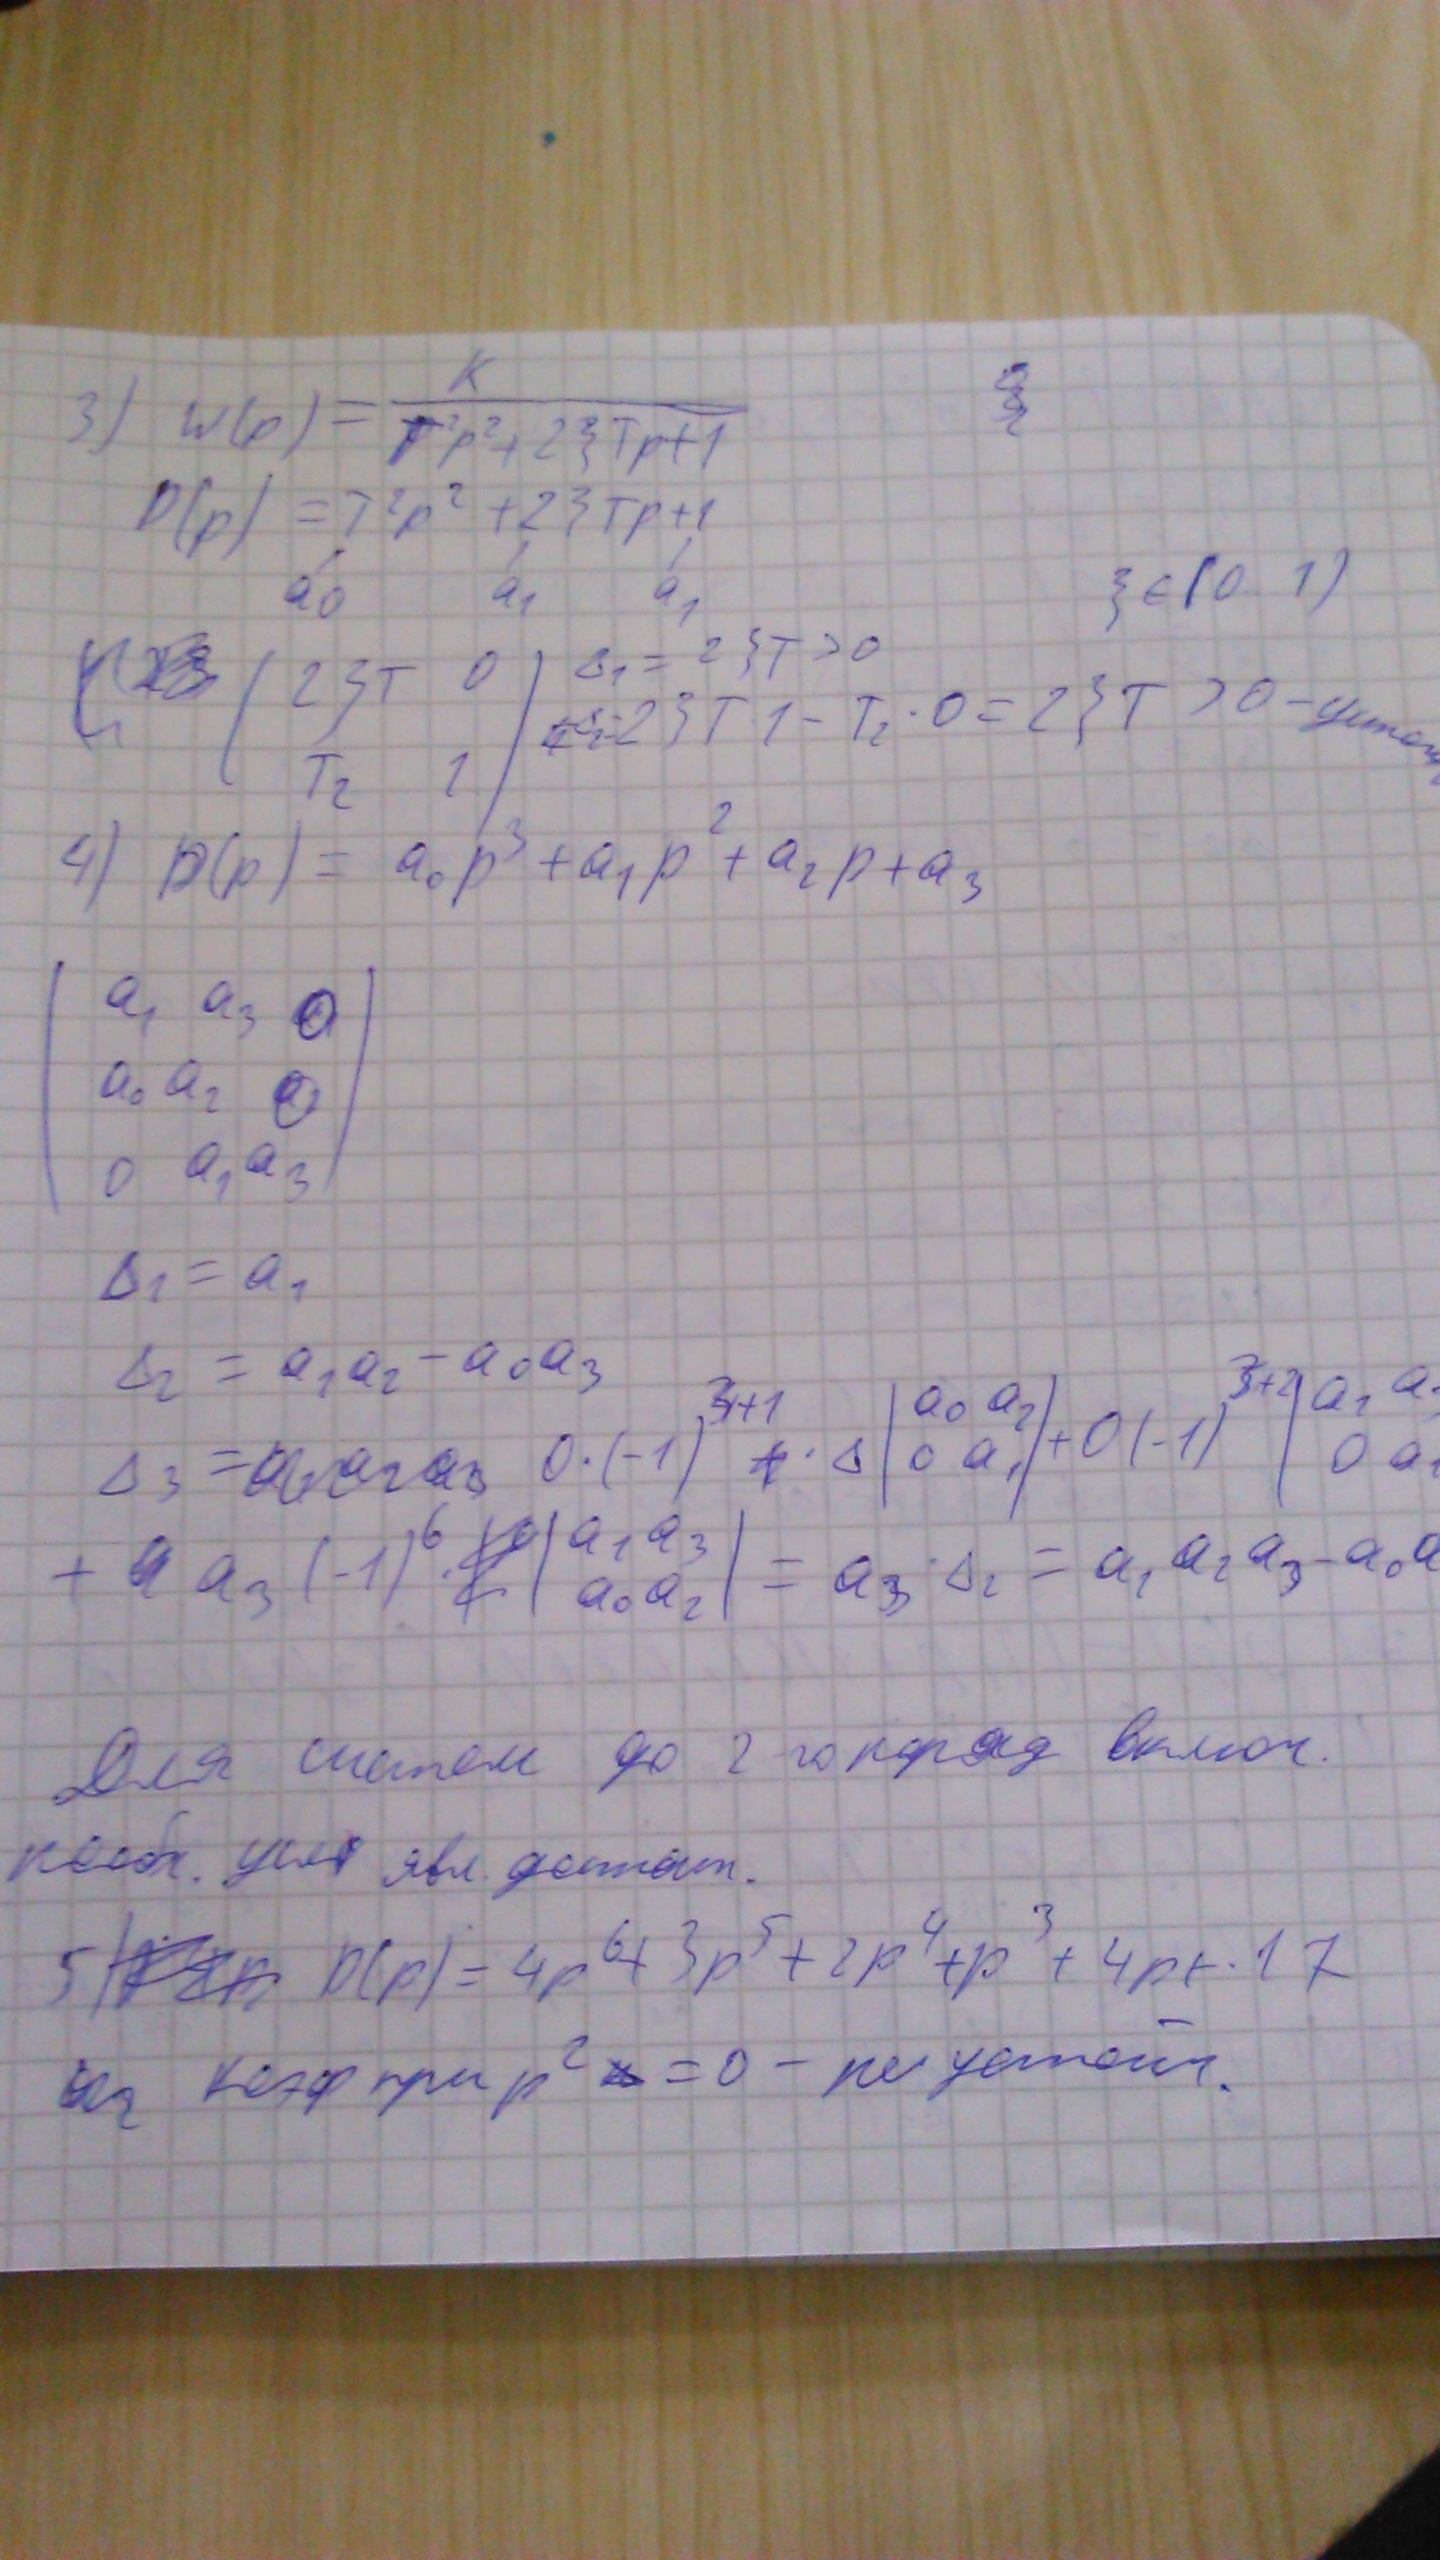 3) W(p) = K / (T²p² + 2ξTp + 1)
D(p) = T²p² + 2ξTp + 1
a0 a₁ a₁
ξ ∈ (0 1)
( 2ξT 0 ) Δ₁ = 2ξT > 0
( T₂ 1 ) Δ₂ = 2ξT·1 − T₂·0 = 2ξT > 0 −
4) D(p) = a₀p³ + a₁p² + a₂p + a₃
a₁ a₃ 0
a₀ a₂ 0
0 a₁ a₃
Δ₁ = a₁
Δ₂ = a₁a₂ − a₀a₃
Δ₃ = 0·(−1)³⁺¹ · Δ |a₀ a₂; 0 a₁| + 0(−1)³⁺² |a₁ a; 0 a₁
+ a₃ (−1)⁶ · |a₁ a₃; a₀ a₂| = a₃·Δ₂ = a₁a₂a₃ − a₀a
Для систем до 2-го поряд включ.
необх. усл явл. достат.
5) D(p) = 4p⁶ + 3p⁵ + 2p⁴ + p³ + 4p + 17
коэф при p² = 0 − не устойч.